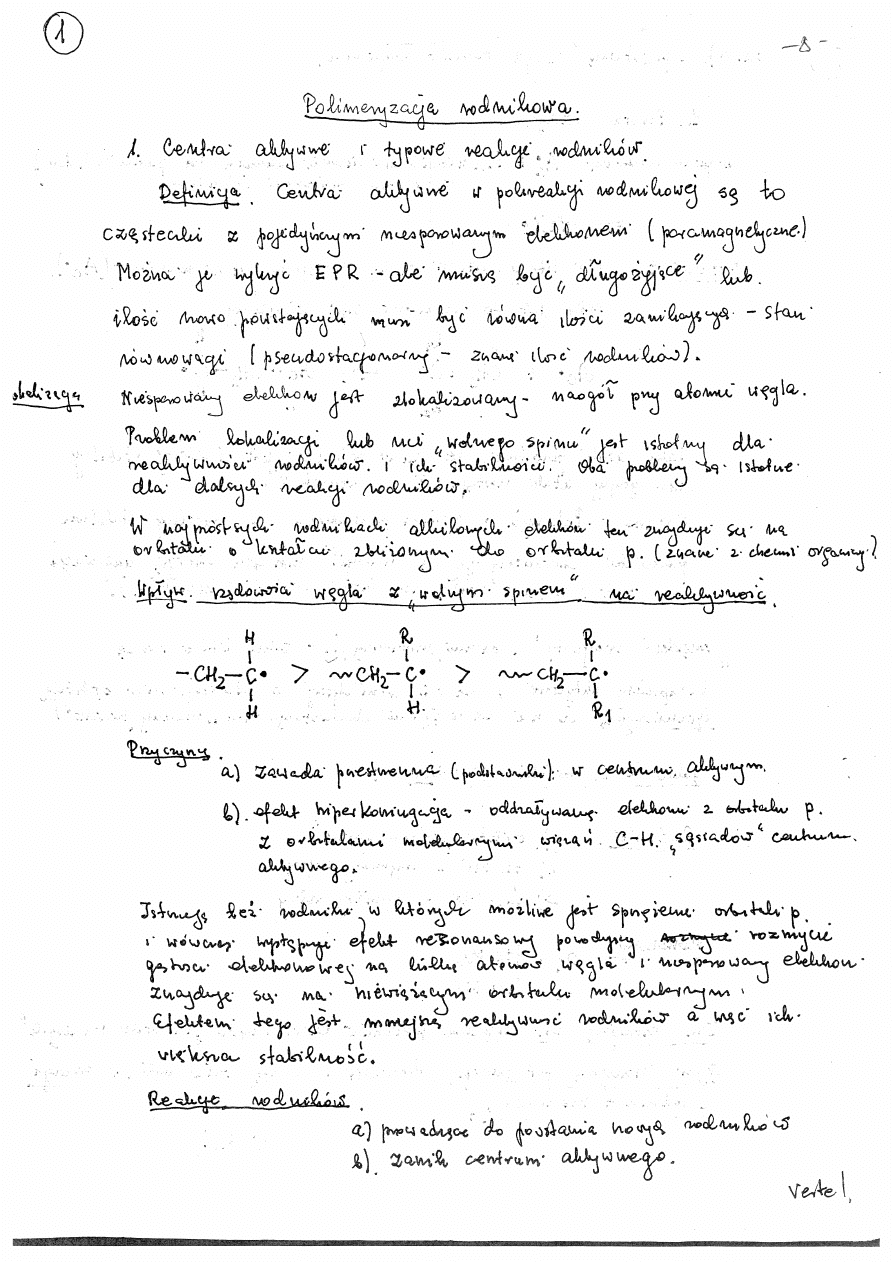 1
-8-
Polimeryzacja rodnikowa.
1. Centra aktywne i typowe reakcje rodników.
Definicja. Centra aktywne w polireakcji rodnikowej są to
cząsteczki z pojedyńczym niesparowanym elektronem (paramagnetyczne)
Można je wykryć EPR - ale muszą być „długożyjące" lub
ilość nowo powstających musi być równa ilości zanikającej - stan
równowagi (pseudostacjonarny - znana ilość rodników).
Niesparowany elektron jest zlokalizowany - naogół przy atomie węgla.
Problem lokalizacji lub "wolnego spinu" jest istotny dla
reaktywności rodników i ich stabilności. Oba problemy są istotne
dla dalszych reakcji rodników.
W najprostszych rodnikach alkilowych elektron ten znajduje się na
orbitalu o kształcie zbliżonym do orbitalu p. (znane z chemii organicznej)
Wpływ rzędowości węgla z „wolnym spinem" na reaktywność.
H R R
-CH2-C• > ~CH2-C• > ~CH2-C•
H H R1
Przyczyny.
a) zawada przestrzenna (podstawniki) w centrum aktywnym.
b) efekt hiperkoniugacja - oddziaływanie elektronu z orbitalu p.
z orbitalami molekularnymi wiązań C-H „sąsiadów" centrum
aktywnego.
Istnieją też rodniki w których możliwe jest sprzężenie orbitali p.
i wówczas występuje efekt rezonansowy powodujący rozmycie
gęstości elektronowej na kilku atomów węgla i niesparowany elektron
znajduje się na niewiążącym orbitalu molekularnym.
Efektem tego jest mniejsza reaktywność rodników a więc ich
większa stabilność.
Reakcje rodników.
a) prowadzące do powstania nowych rodników
b) zanik centrum aktywnego.
verte!